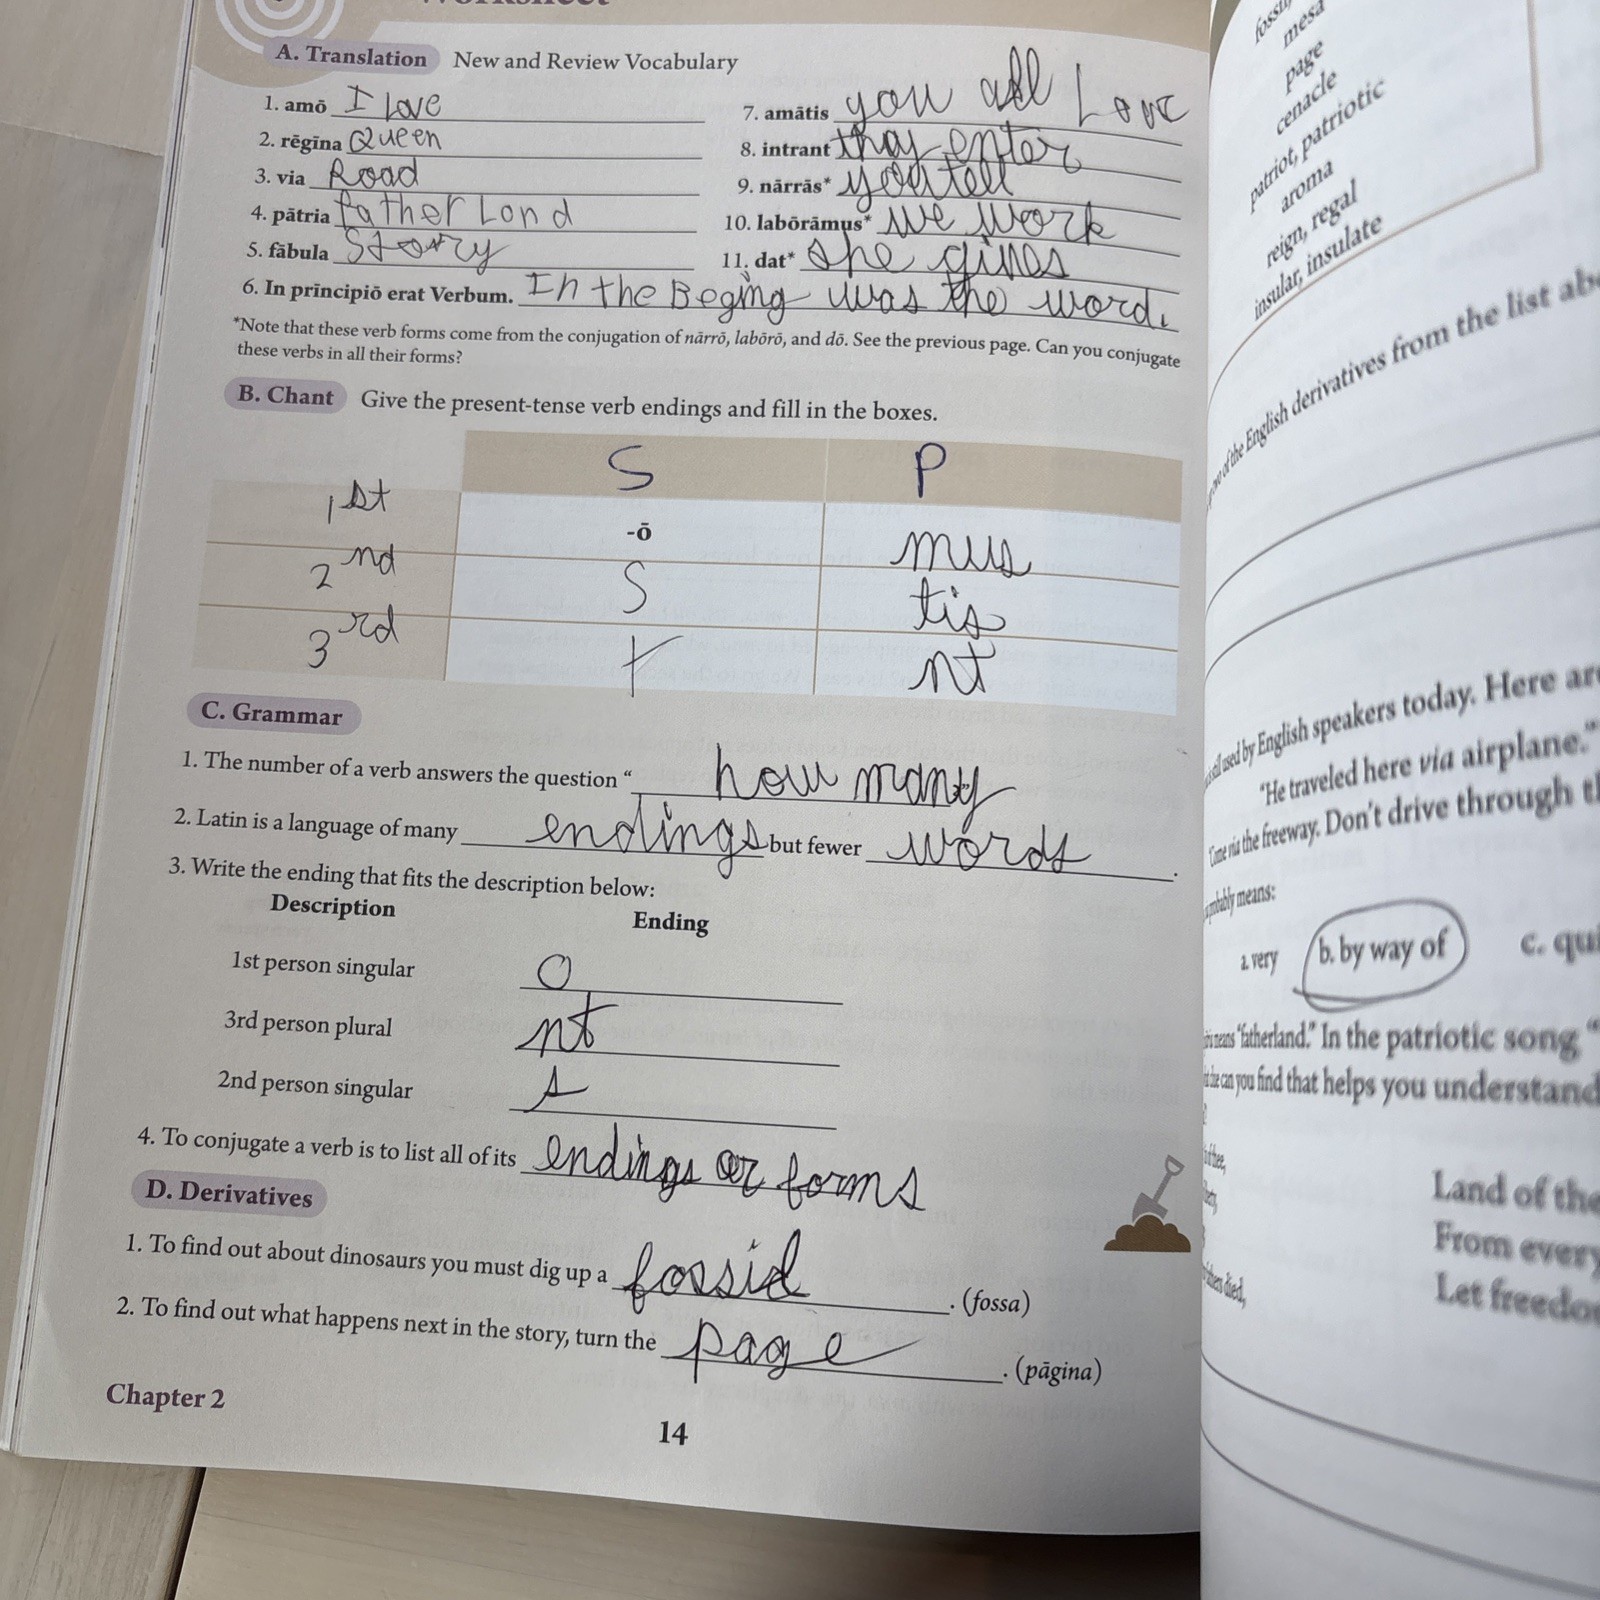 Worksheet
A. Translation New and Review Vocabulary
1. amō I Love
2. rēgīna Queen
3. via Road
4. pātria father Lond
5. fābula Story
6. In prīncipiō erat Verbum. In the Begiing was the word.
7. amātis you all Love
8. intrant thay enter
9. nārrās* you tell
10. labōrāmus* we work
11. dat* she gives
*Note that these verb forms come from the conjugation of nārrō, labōrō, and dō. See the previous page. Can you conjugate
these verbs in all their forms?
B. Chant Give the present-tense verb endings and fill in the boxes.
S P
1st -ō mus
2nd S tis
3rd t nt
C. Grammar
1. The number of a verb answers the question “ how many
2. Latin is a language of many endings but fewer words .
3. Write the ending that fits the description below:
Description Ending
1st person singular O
3rd person plural nt
2nd person singular s
4. To conjugate a verb is to list all of its endings or forms
D. Derivatives
1. To find out about dinosaurs you must dig up a fossid . (fossa)
2. To find out what happens next in the story, turn the page . (pāgina)
Chapter 2
14
mesa
page
cenacle
patriot, patriotic
aroma
reign, regal
insular, insulate
of the English derivatives from the list
used by English speakers today. Here
“He traveled here via airplane.”
via the freeway. Don't drive through
probably means:
a. very b. by way of c.
means “fatherland.” In the patriotic song “
can you find that helps you understand
Land of the
From every
Let
died,